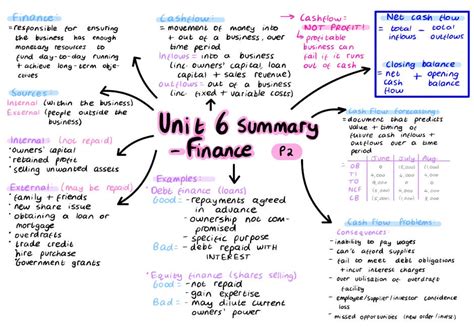 Finance
=responsible for ensuring
the business has enough
monetary resources to
fund day-to-day running
+ achieve long-term obje-
ctives
Sources
Internal (within the business)
External (people outside the
business)
Internal (not repaid)
• owners' capital
• retained profit
• selling unwanted assets
External (may be repaid)
• family + friends
• new share issue
• obtaining a loan or
mortgage
• overdrafts
• trade credit
• hire purchase
• Government grants
Cashflow
= movement of money into
+ out of a business, over
time period
Inflows = into a business
(inc owners' capital, loan
capital + sales revenue)
outflows = out of a business
(inc fixed + variable costs)
Cashflow =
NOT PROFIT!
↳ profitable
business can
fail if it runs
out of cash
Unit 6 Summary
- Finance P2
Examples:
• Debt finance (loans)
Good = - repayments agreed
in advance
- ownership not com-
promised
- specific purpose
Bad = - debt repaid WITH
INTEREST
• Equity finance (shares selling)
Good = - not repaid
- gain expertise
Bad = - may dilute current
owners' power
Net cash flow
= total - total
inflows outflows
Closing balance
= net + opening
cash balance
flow
Cash Flow forecasting
= document that predicts
value + timing of
future cash inflows +
outflows over a time
period
June July Aug
OB
TI
TO
NCF
CB
Cash Flow Problems
Consequences:
- inability to pay wages
- can't afford supplies
- fail to meet debt obligations
+ incur interest charges
- over utilisation of overdraft
facility
- employee/supplier/investor confidence
loss
- missed opportunities